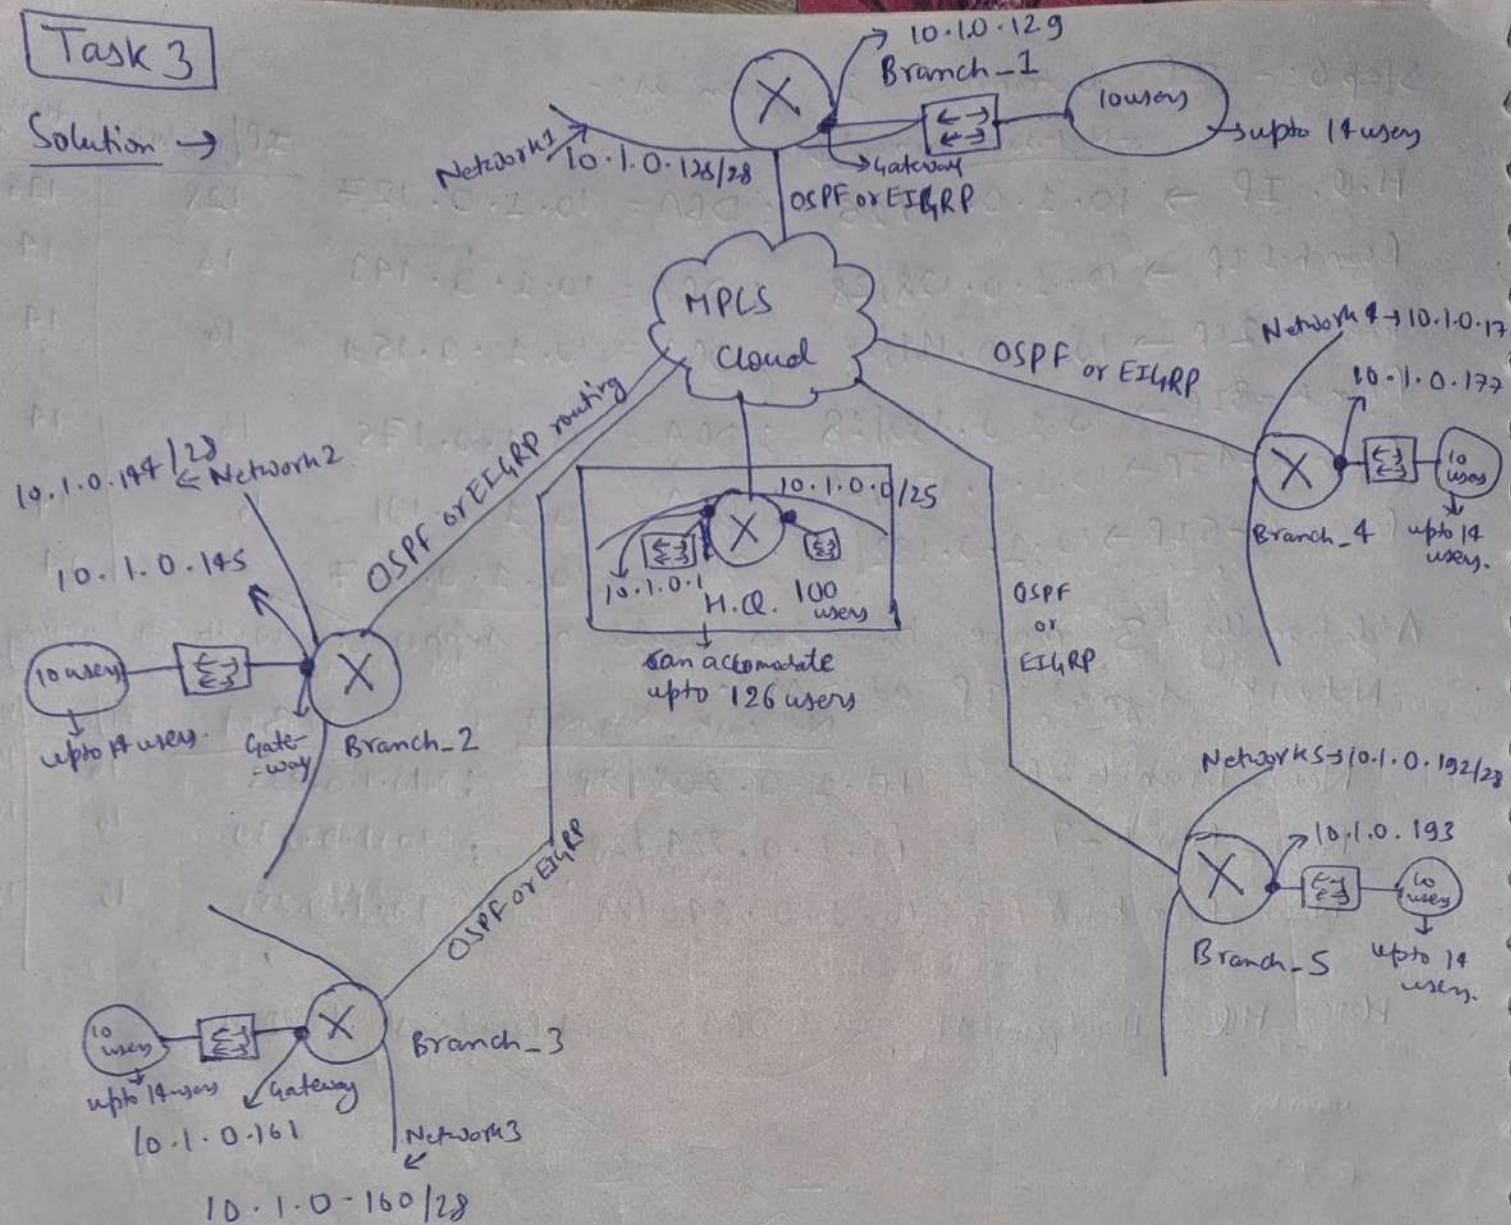 Task 3
Solution →
10.1.0.129
Branch_1
10 users
upto 14 users
Network1
10.1.0.128/28
Gateway
OSPF or EIGRP
MPLS
Cloud
Network 4 → 10.1.0.17
OSPF or EIGRP
10.1.0.177
10
users
Branch_4
upto 14
users.
OSPF or EIGRP routing
10.1.0.144/28
← Network2
10.1.0.145
10 users
upto 14 users.
Gate-
-way
Branch_2
10.1.0.0/25
10.1.0.1
H.Q.
100
users
can accomodate
upto 126 users
OSPF
or
EIGRP
Network5 → 10.1.0.192/28
10.1.0.193
10
users
Branch_5
upto 14
users.
OSPF or EIGRP
10
users
Branch_3
upto 14 users
Gateway
10.1.0.161
Network3
10.1.0.160/28